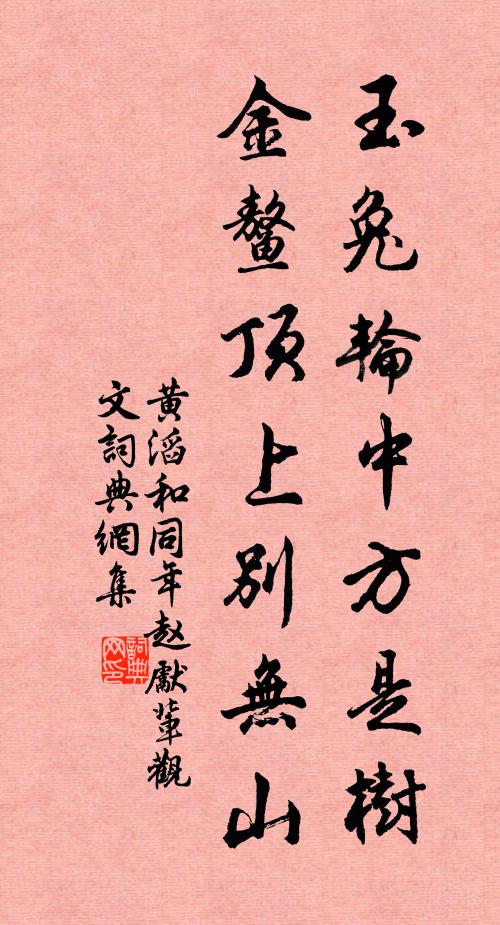 玉兔輪中方是樹
金鰲頂上別無山
黃滔和同年赵獻輩觀
文詞典網集
詞典
网印